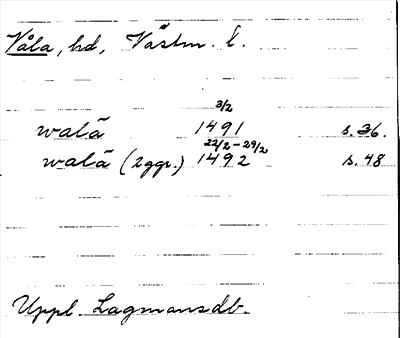 Våla, hd, Västm. l.
3/2
walā 1491 s. 36.
22/2 - 29/2
walā (2ggr.) 1492 s. 48
Uppl. Lagmansdb.